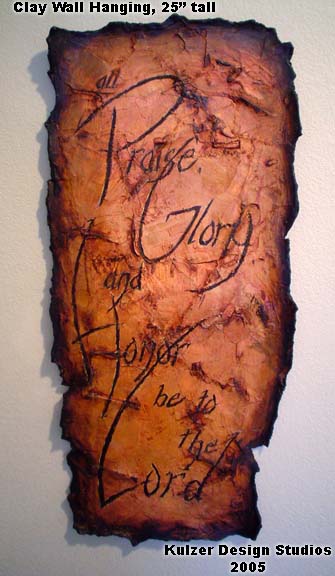 Clay Wall Hanging, 25” tall
all
Praise,
Glory
and
Honor
be to
the
Lord
Kulzer Design Studios
2005